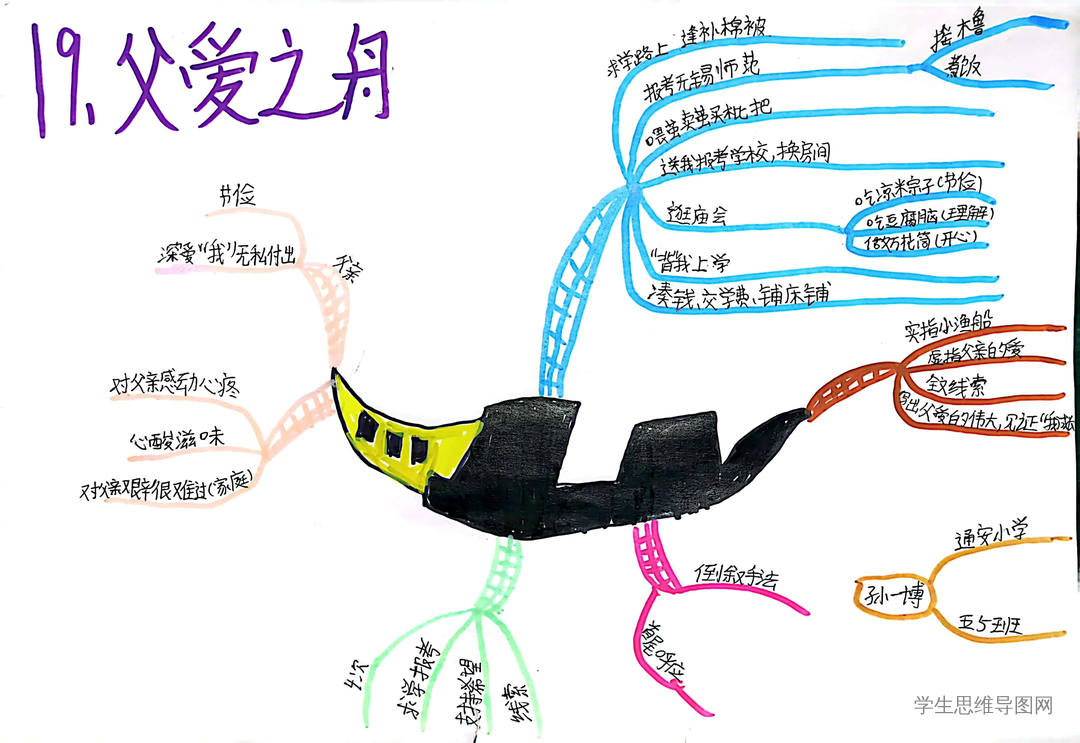 19.父爱之舟
求学路上 缝补棉被
报考无锡师范
摇橹
煮饭
喂茧卖茧买枇杷
送我报考学校,换房间
逛庙会
吃凉粽子(节俭)
吃豆腐脑(理解)
做万花筒(开心)
"背"我上学
凑钱、交学费、铺床铺
节俭
深爱"我"无私付出
父亲
对父亲感动心疼
心酸滋味
对父亲艰辛很难过(家庭)
实指小渔船
虚指父亲的爱
全文线索
写出父爱的伟大,见证"我"成
倒叙手法
首尾呼应
4次
求学报考
支持希望
线索
通安小学
孙一博
五5班
学生思维导图网